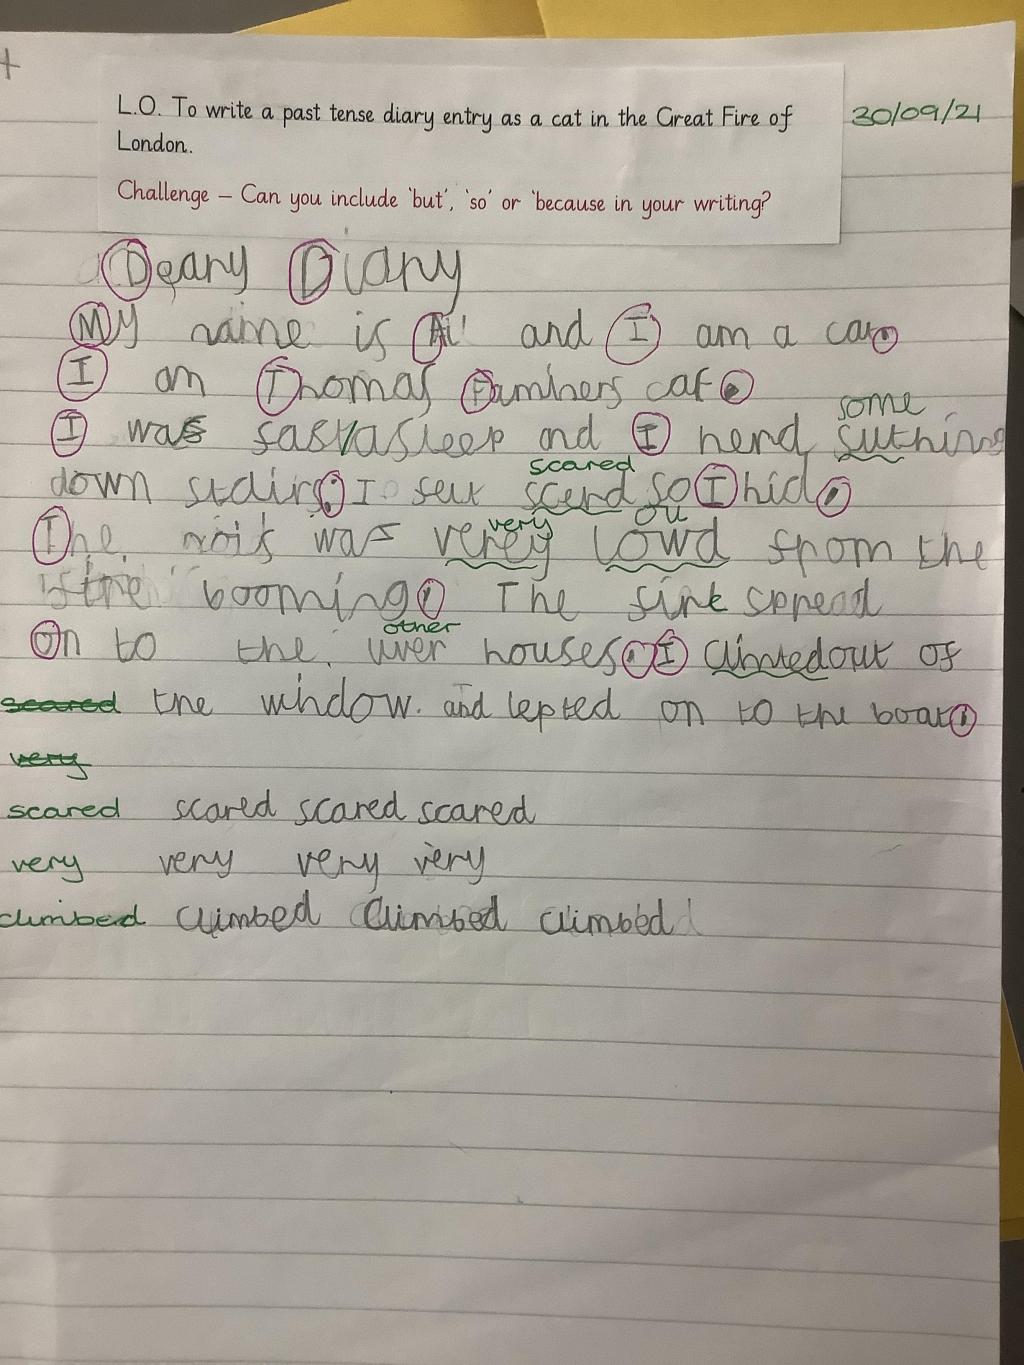 L.O. To write a past tense diary entry as a cat in the Great Fire of
London.
30/09/21
Challenge – Can you include 'but', 'so' or 'because in your writing?
Deary Diary
My name is Ali and I am a cat.
I am Thomas Faminers cat.
I was fast/asleep and I herd suthing
some
down stairs. I felt scerd so I hid.
scared
The nois was verey lowd from the
very
ou
fire booming. The fire spread
On to the uver houses. I climted out of
other
scared the window. and lepted on to the boat.
very
scared scared scared scared
very very very very
climbed climbed climbed climbed